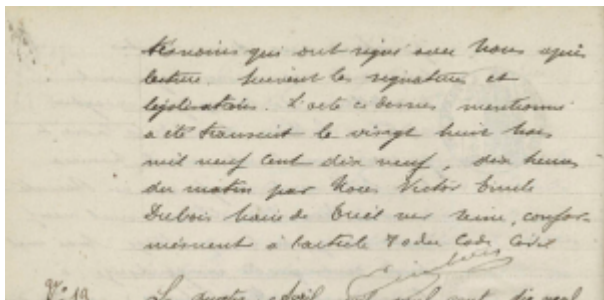 témoins qui ont signé avec Nous après
lecture. Suivent les signatures et
légalisations. L'acte ci dessus mentionné
a été transcrit le vingt huit Mars
mil neuf cent dix neuf, dix heures
du matin par Nous Victor Emile
Dubois Maire de sur Seine, confor-
mément à l'article 70 du Code Civil
Dubois
N° 19 Le quatre Avril mil neuf cent dix neuf